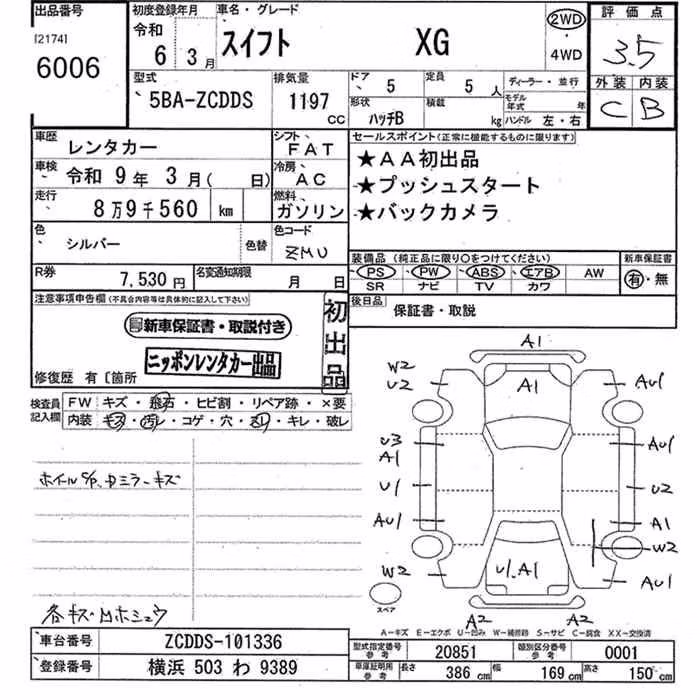 出品番号 初度登録年月 車名・グレード 評価点
[2174] 令和 スイフト XG 2WD 3.5
6006 6 3月 4WD
型式 排気量 ドア 5 定員 5人 ディーラー・並行 外装 内装
5BA-ZCDDS 1197 CC 形状 ハッチB 積載 kg モデル年式 年 ハンドル 左・右 C B
車歴 レンタカー シフト FAT セールスポイント(正常に機能するものに限ります)
車検 令和 9年 3月( 日) 冷房 AC ★AA初出品
★プッシュスタート
走行 8万9千560 km 燃料 ガソリン ★バックカメラ
色 シルバー 色替 色コード ZMU
装備品 (純正品に限り○をつけてください) 新車保証書
R券 7,530円 名変通知期限 月 日 PS PW ABS エアB AW 有・無
SR ナビ TV カワ
注意事項申告欄(不具合内容等は具体的に記入して下さい) 初出品 後日品 保証書・取説
新車保証書・取説付き
ニッポンレンタカー出品
修復歴 有〔箇所
検査員記入欄 FW キズ・飛石・ヒビ割・リペア跡・×要
内装 キズ・汚レ・コゲ・穴・スレ・キレ・破レ
A1
W2
U2 A1 AU1
U3
A1 AU1
ホイルS/P、ドミラーキズ
U1 U2
AU1 A1
W2
W2 U1.A1 AU1
スペア
A2 A2
各キズ凹ホシュウ
A-キズ E-エクボ U-凹み W-補修跡 S-サビ C-腐食 XX-交換済
車台番号 ZCDDS-101336 型式指定番号 参考 20851 類別区分番号 参考 0001
登録番号 横浜 503 わ 9389 車庫証明用 参考 長さ 386 cm 幅 169 cm 高さ 150 cm